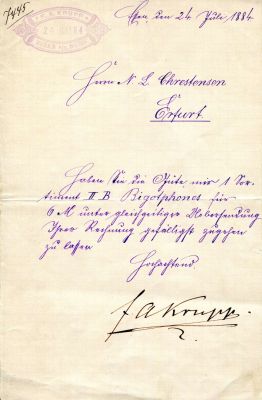 7445
F. A. KRUPP
Essen, den 24 Juli 1884
Herrn N. L. Chrestensen
Erfurt.
Haben Sie die Güte mir 1 Sor-
timent II B Bigotphones für
6 M unter gleichzeitiger Uebersendung
Ihrer Rechnung gefälligst zugehen
zu lassen
Hochachtend
F A Krupp.